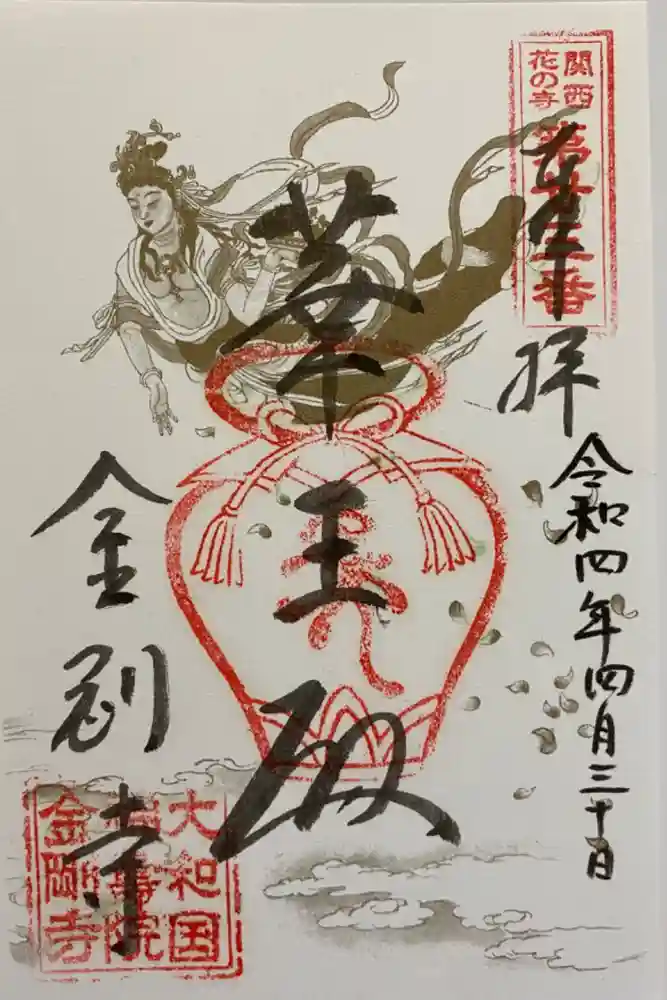 関西
花の寺
第廿三番
奉拝
令和四年四月三十日
華王殿
金剛寺
大和国
壽院
金剛寺